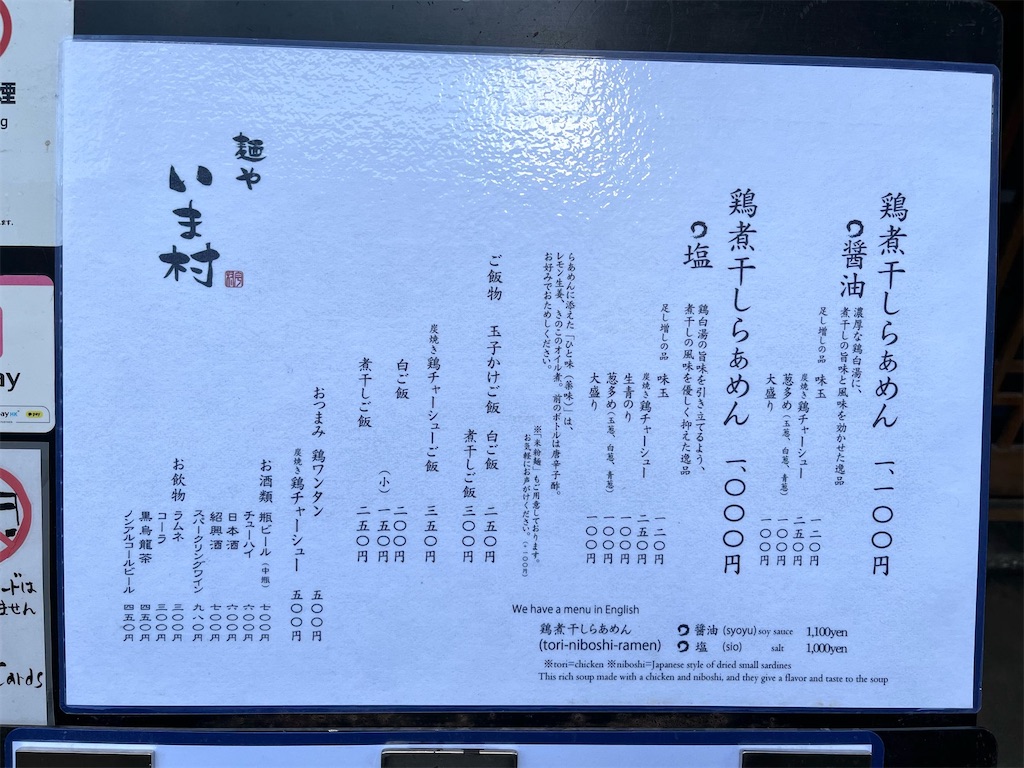 鶏煮干しらぁめん 一、一〇〇円
醤油
濃厚な鶏白湯に、
煮干しの旨味と風味を効かせた逸品
足し増しの品 味玉 一二〇円
炭焼き鶏チャーシュー 二五〇円
葱多め(玉葱、白葱、青葱) 一〇〇円
大盛り 一〇〇円
鶏煮干しらぁめん 一、〇〇〇円
塩
鶏白湯の旨味を引き立てるよう、
煮干しの風味を優しく抑えた逸品
足し増しの品 味玉 一二〇円
炭焼き鶏チャーシュー 二五〇円
生青のり 一〇〇円
葱多め(玉葱、白葱、青葱) 一〇〇円
大盛り 一〇〇円
らあめんに添えた「ひと味(薬味)」は、
レモン生姜、きのこのオイル煮。前のボトルは唐辛子酢。
お好みでおためしください。
※「米粉麺」もご用意しております。
お気軽にお声がけください。(+一〇〇円)
ご飯物 玉子かけご飯 白ご飯 二五〇円
煮干しご飯 三〇〇円
炭焼き鶏チャーシューご飯 三五〇円
白ご飯 二〇〇円
(小) 一五〇円
煮干しご飯 二五〇円
おつまみ 鶏ワンタン 五〇〇円
炭焼き鶏チャーシュー 五〇〇円
お酒類 瓶ビール(中瓶) 七〇〇円
チューハイ 六〇〇円
日本酒 六〇〇円
紹興酒 七〇〇円
スパークリングワイン 九八〇円
お飲物 ラムネ 三〇〇円
コーラ 三〇〇円
黒烏龍茶 四五〇円
ノンアルコールビール 四五〇円
麺や
いま村
We have a menu in English
鶏煮干しらぁめん
(tori-niboshi-ramen)
醤油 (syoyu) soy sauce 1,100yen
塩 (sio) salt 1,000yen
※tori=chicken ※niboshi=Japanese style of dried small sardines
This rich soup made with a chicken and niboshi, and they give a flavor and taste to the soup
煙
g
ay
pay
ードは
ません
Cards